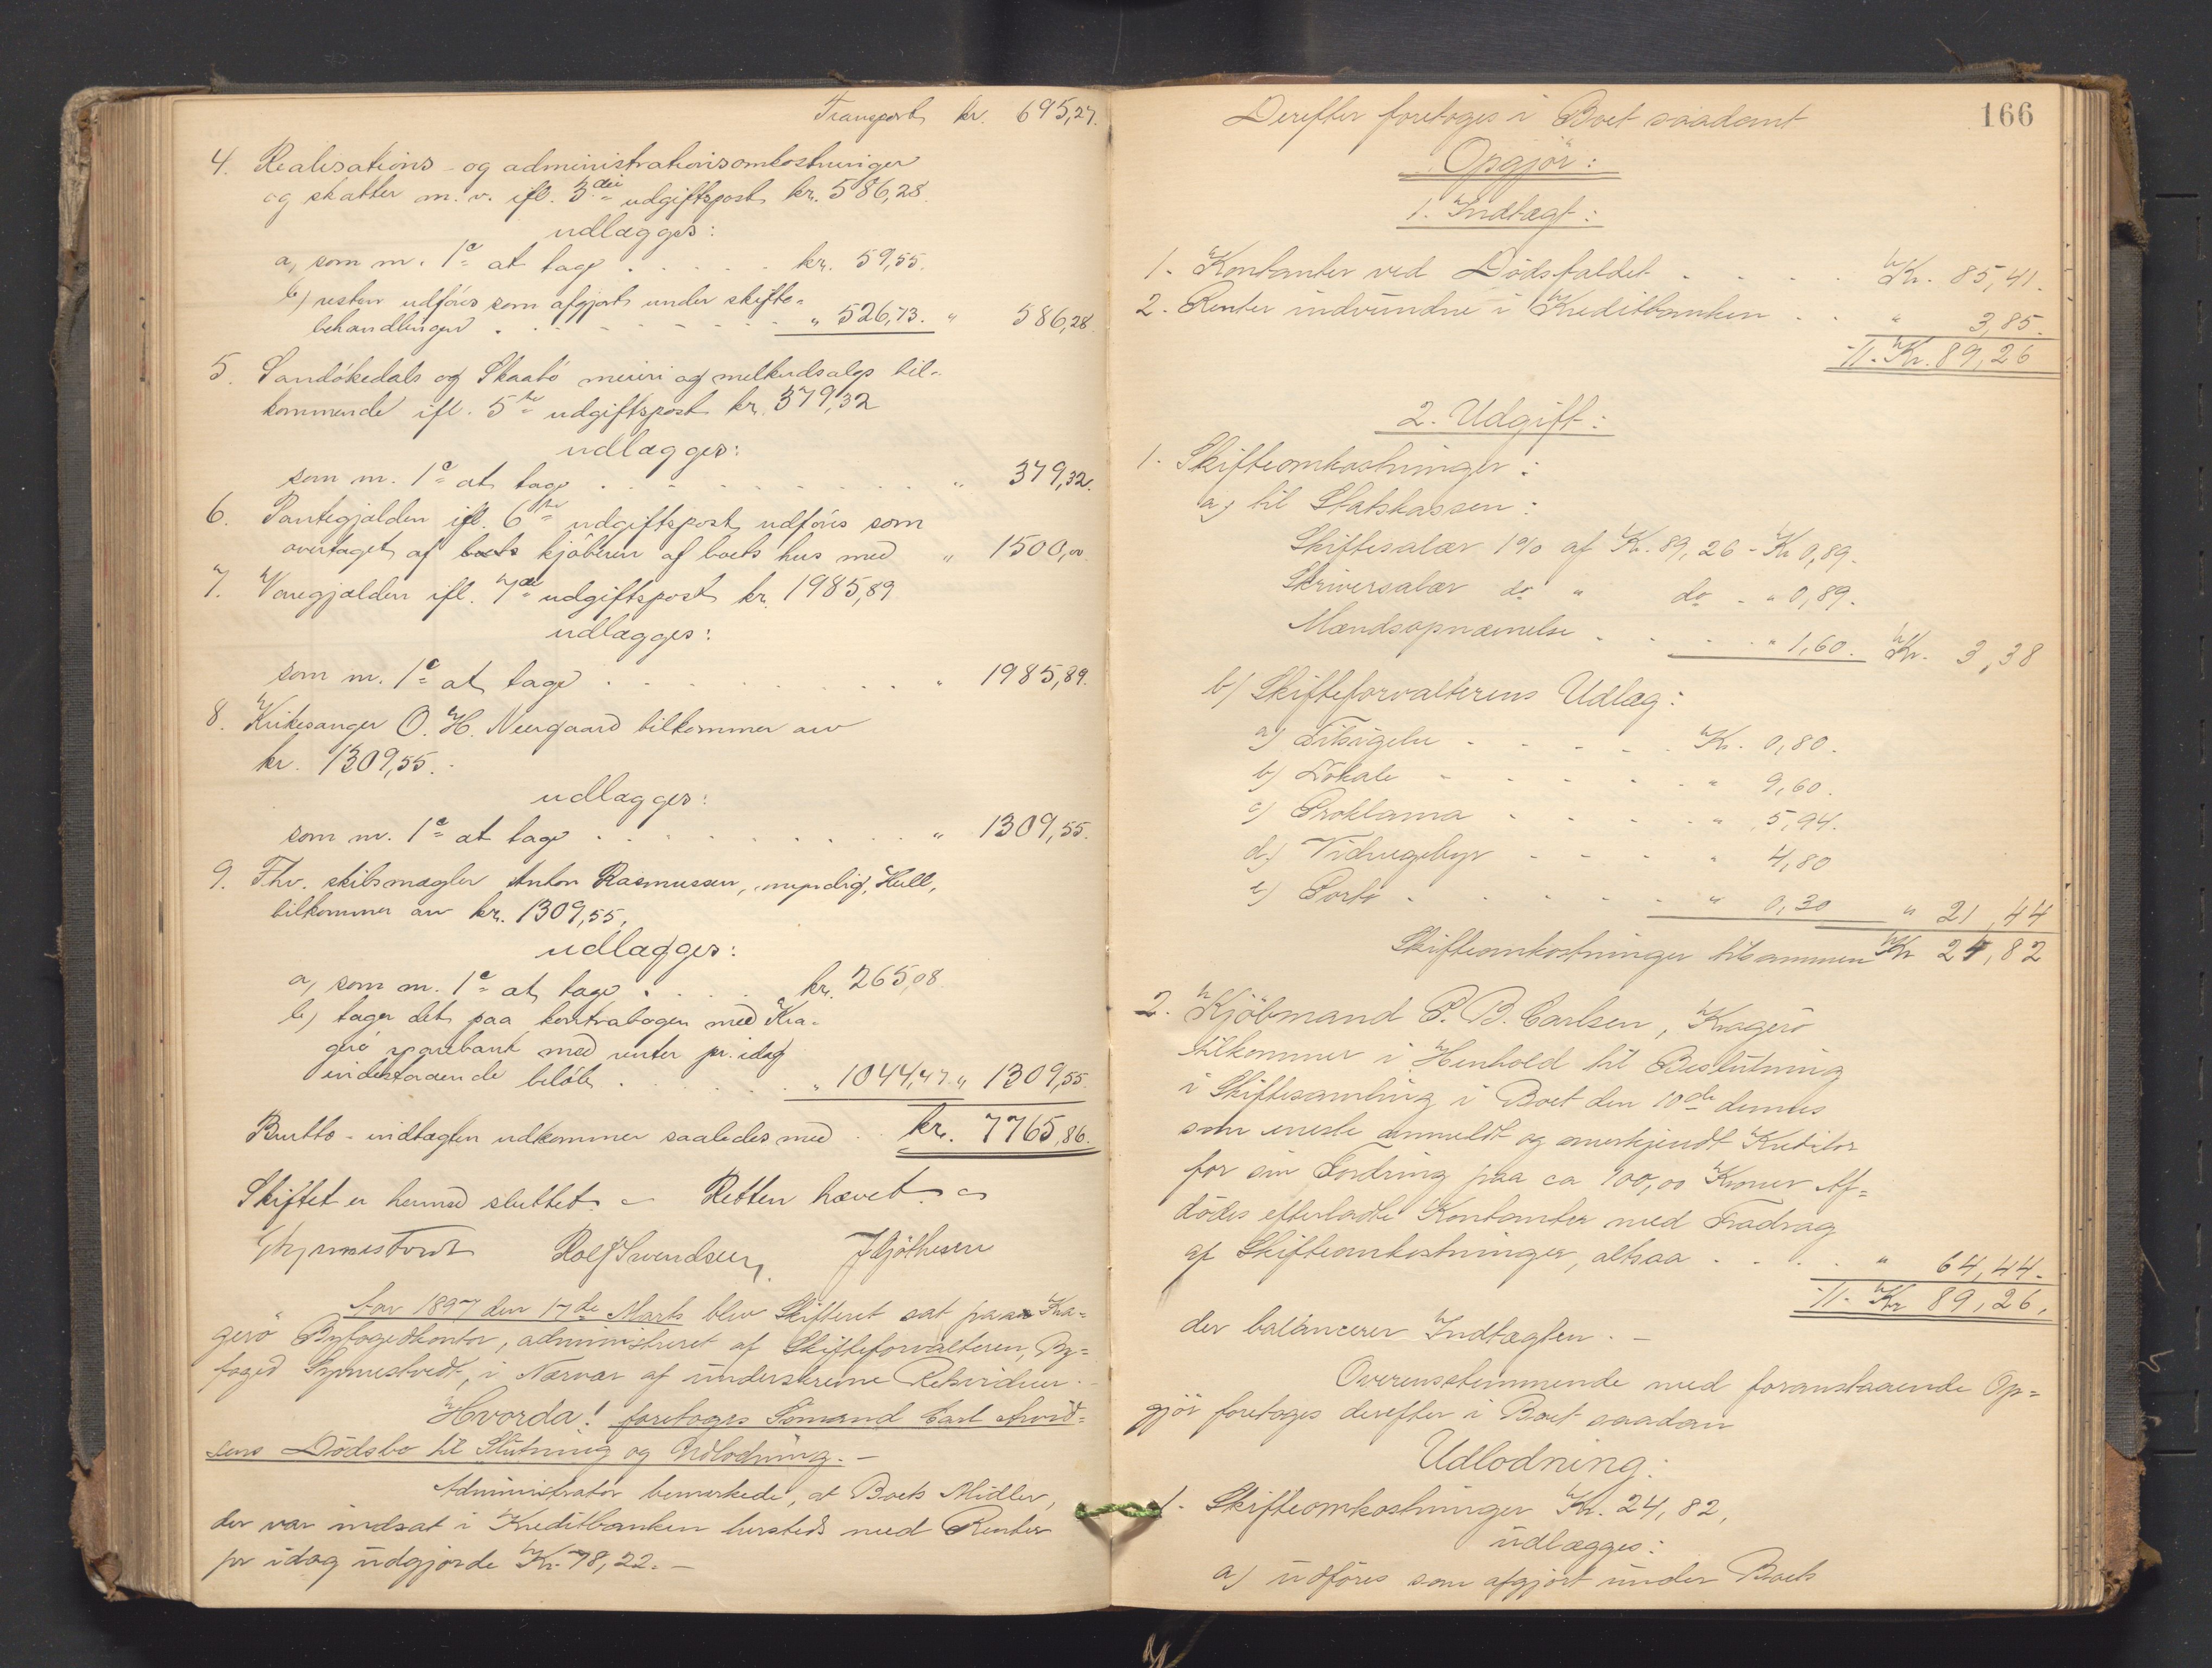 Transport kr. 695,27.
4. Realisations- og administrationsomkostninger
og skatter m. v. ifl. 3die udgiftspost kr. 586,28.
udlægges:
a, som m. 1e at tage . . . . . kr. 59,55.
b) resten udføres som afgjort under skifte-
behandlingen . . . . . . . . " 526,73. " 586,28.
5. Sandökedals og Skaatö meieri og melkeudsalgs til-
kommende ifl. 5te udgiftspost kr. 379,32
udlægges:
som m. 1e at tage . . . . . . . . " 379,32.
6. Pantegjælden ifl. 6te udgiftspost, udføres som
overtaget af boets kjöberen af boets hus med " 1500,00
7. Varegjælden ifl. 7de udgiftspost kr. 1985,89
udlægges:
som m. 1e at tage . . . . . . . . " 1985,89.
8. Kirkesanger O. H. Neergaard tilkommer arv
kr. 1309,55.
udlægges:
som m. 1e at tage . . . . . . . . " 1309,55.
9. Fhv. skibsmægler Anton Rasmussen, myndig, Hull,
tilkommer arv kr. 1309,55,
udlægges:
a, som m. 1e at tage . . . . kr. 265,08.
b) tager det paa kontrabogen med Kra-
gerö sparebank med renter pr. idag
indestaaende belöb . . . . . " 1044,47. " 1309,55.
Brutto-indtægten udkommer saaledes med . . kr. 7765,86.
Skiftet er hermed sluttet. – Retten hævet.
Rolf Svendsen J Gjöthesen
Aar 1897 den 17de Marts blev Skifteret sat paa Kra-
gerö Byfogedkontor, administreret af Skifteforvalteren, By-
foged Symnestvedt, i Nærvær af underskrevne Retsvidner. –
Hvorda! foretoges Sömand Carl Arvid-
sens Dödsbo til Slutning og Udlodning. –
Administrator bemærkede, at Boets Midler,
der var indsat i Kreditbanken hersteds med Renter
pr idag udgjorde Kr. 78,22. –
166
Derefter foretoges i Boet saadant
Opgjör:
1. Indtægt:
1. Kontanter ved Dödsfaldet . . . . . Kr. 85,41.
2. Renter indvundne i Kreditbanken . . " 3,85.
Tl. Kr. 89,26
2. Udgift:
1. Skifteomkostninger:
a) til Statskassen:
Skiftesalær 1% af Kr. 89,26 - Kr 0,89.
Skriversalær do " do - " 0,89.
Mændsopnævnelse . . . . " 1,60. Kr. 3,38
b) Skifteforvalterens Udlæg:
a) Tilsigelse . . . . . Kr. 0,80.
b) Lokale . . . . . " 9,60.
c) Proklama . . . . " 5,94.
d) Vidnegebyr . . . " 4,80
e) Porto . . . . . " 0,30 " 21,44
Skifteomkostninger tilsammen Kr 24,82
2. Kjöbmand P. B. Carlsen, Kragerö
tilkommer i Henhold til Beslutning
i Skiftesamling i Boet den 10de dennes
som eneste anmeldt og anerkjendt Kreditor
for sin Fordring paa ca 100,00 Kroner Af-
dödes efterladte Kontanter med Fradrag
af Skifteomkostninger, altsaa . . . . " 64,44.
Tl. Kr 89,26.
der balancerer Indtægten. –
Overensstemmende med foranstaaende Op-
gjör foretoges derefter i Boet saadan
Udlodning:
1. Skifteomkostninger Kr. 24,82,
udlægges:
a) udføres som afgjort under Boets